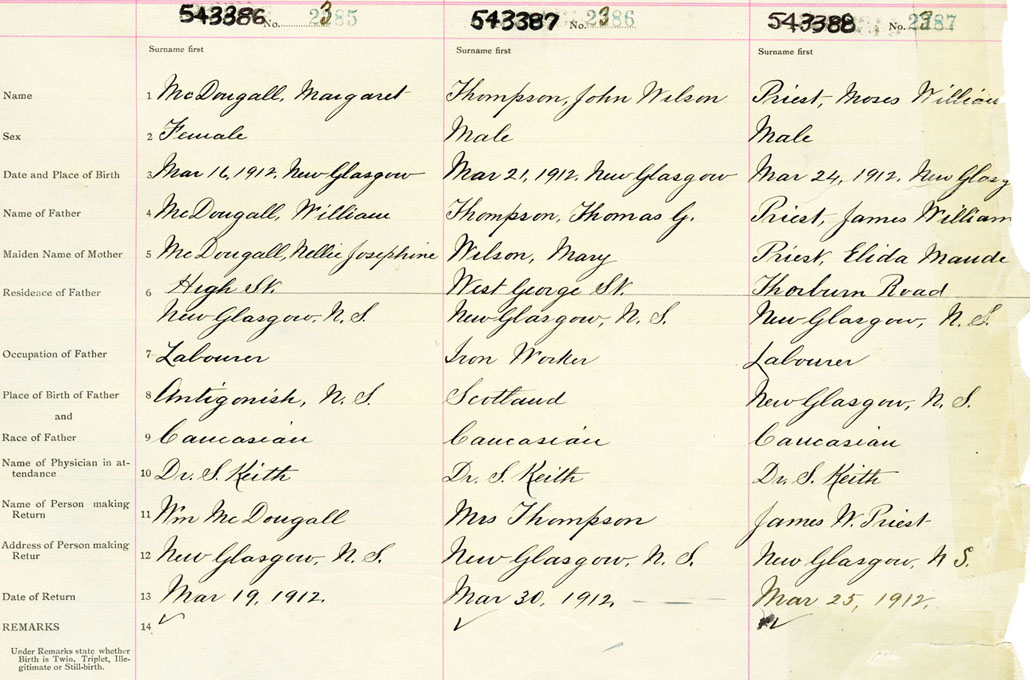 543386 No. 2385 543387 No. 2386 543388 No. 2387
Surname first Surname first Surname first
Name 1 McDougall, Margaret Thompson, John Wilson Priest, Moses William
Sex 2 Female Male Male
Date and Place of Birth 3 Mar 16, 1912, New Glasgow Mar 21, 1912. New Glasgow Mar 24, 1912. New Glasg
Name of Father 4 McDougall, William Thompson, Thomas G. Priest, James William
Maiden Name of Mother 5 McDougall, Nellie Josephine Wilson, Mary Priest, Elida Maude
Residence of Father 6 High St. West George St. Thorburn Road
New Glasgow, N. S. New Glasgow, N. S. New Glasgow, N. S.
Occupation of Father 7 Labourer Iron Worker Labourer
Place of Birth of Father 8 Antigonish, N. S. Scotland New Glasgow, N. S.
and
Race of Father 9 Caucasian Caucasian Caucasian
Name of Physician in at-
tendance 10 Dr. S. Keith Dr. S. Keith Dr. S. Keith
Name of Person making
Return 11 Wm McDougall Mrs Thompson James W. Priest
Address of Person making
Retur 12 New Glasgow, N. S. New Glasgow, N. S. New Glasgow, N S.
Date of Return 13 Mar 19, 1912. Mar 30, 1912. Mar 25, 1912.
REMARKS 14
Under Remarks state whether
Birth is Twin, Triplet, Ille-
gitimate or Still-birth.